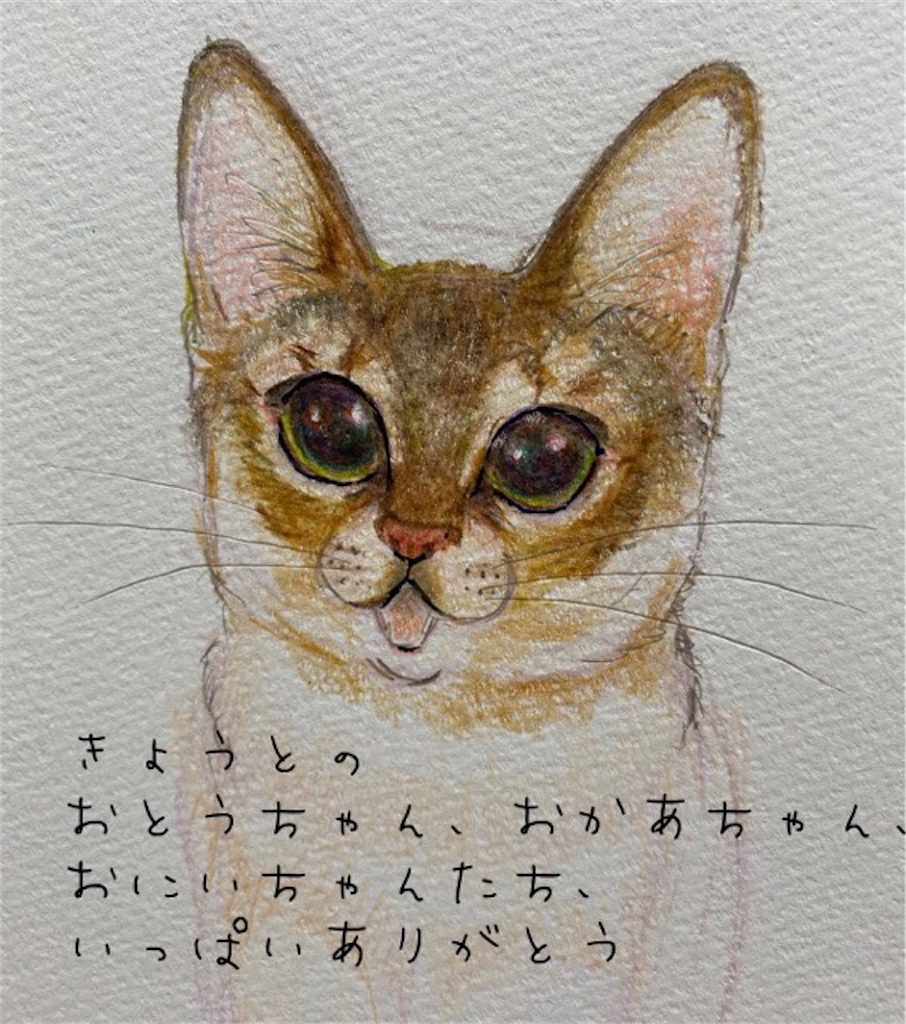 きょうとの
おとうちゃん、おかあちゃん、
おにいちゃんたち、
いっぱいありがとう